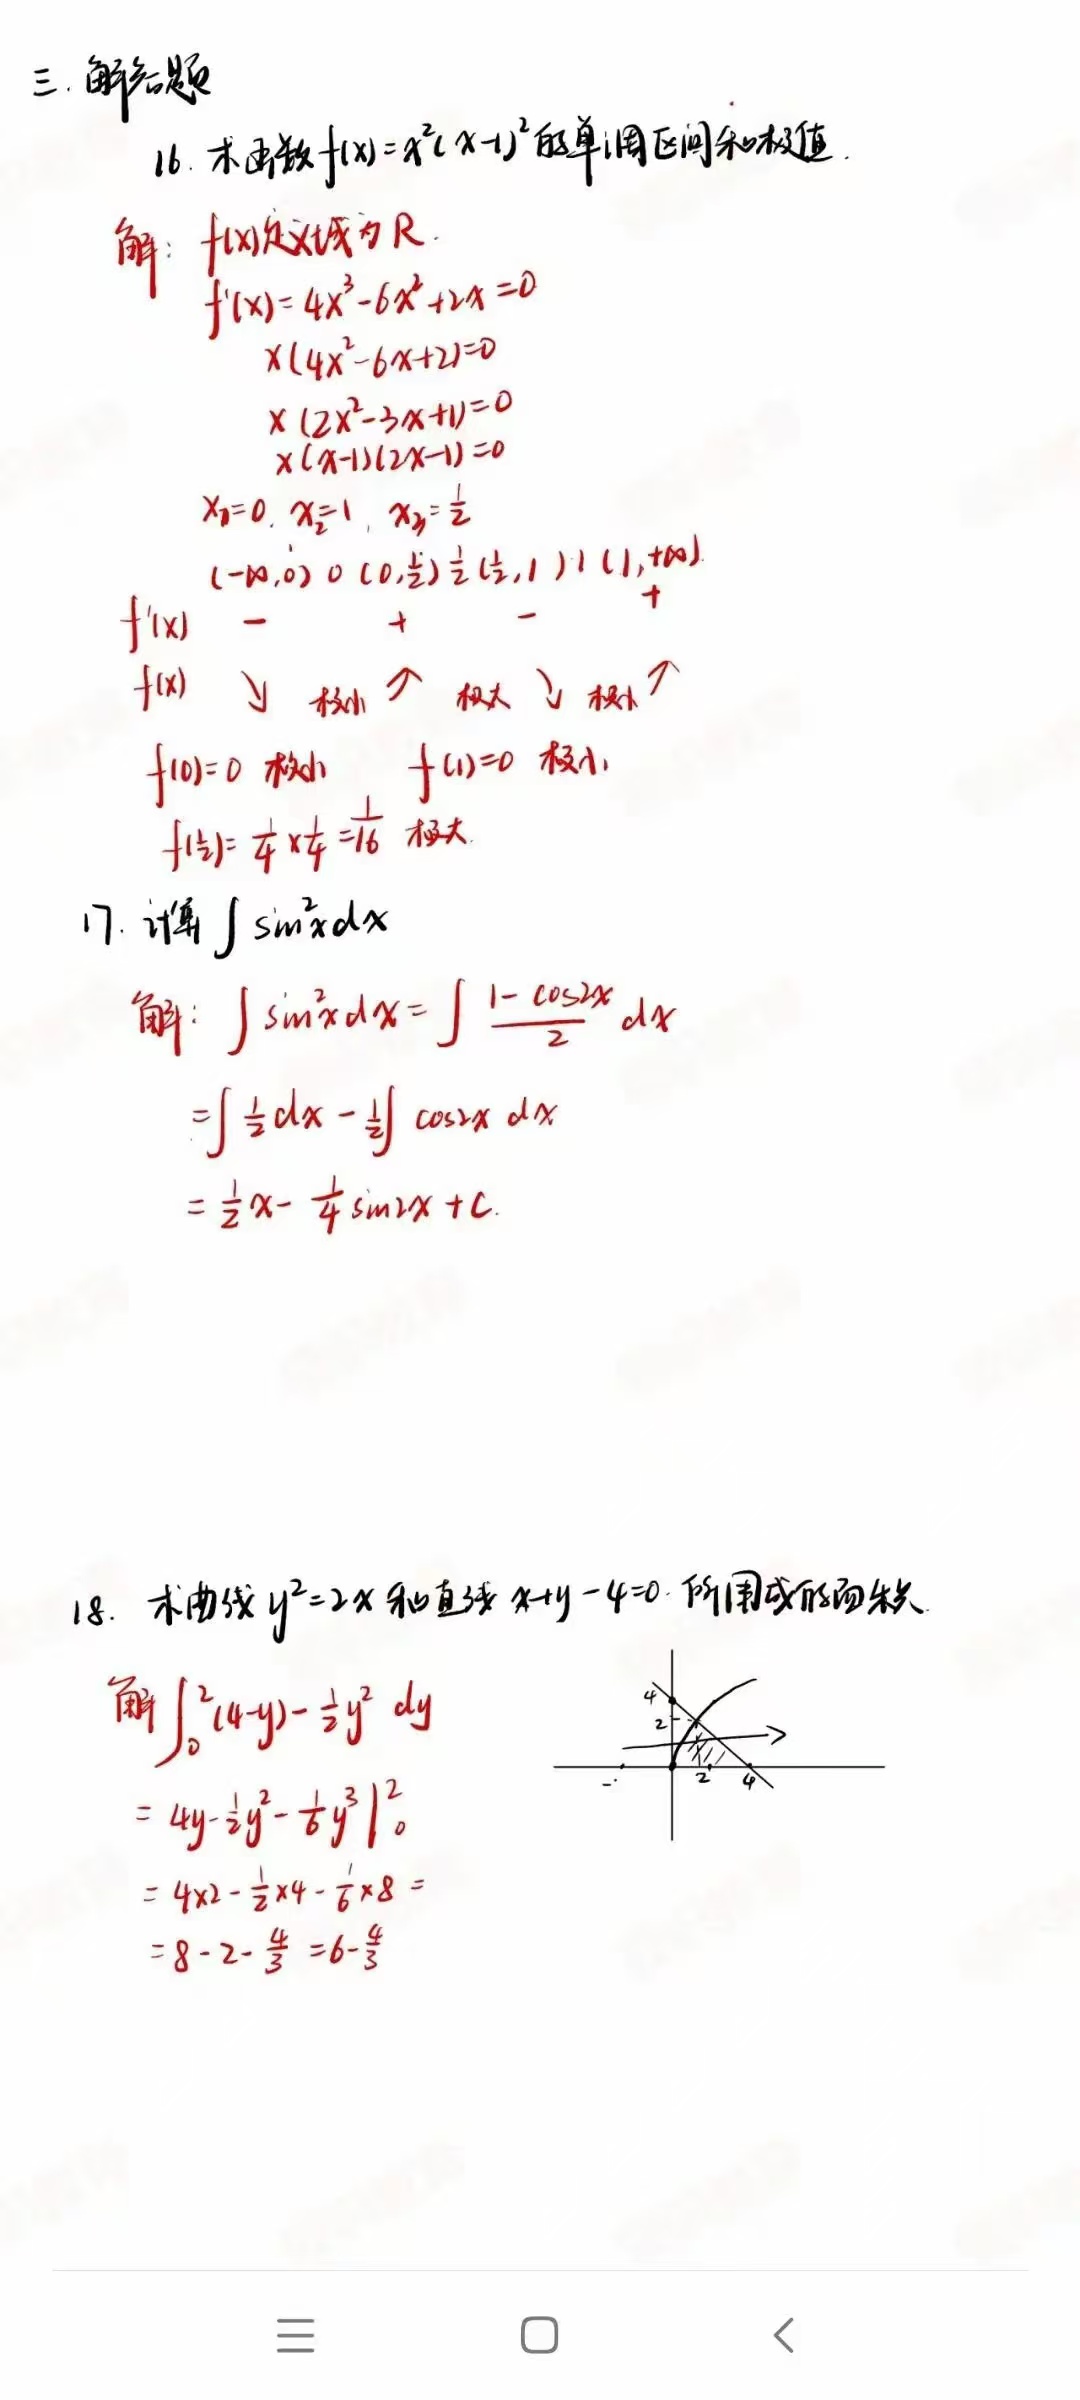 三.解答题
16.求函数f(x)=x²(x-1)²的单调区间和极值.
解: f(x)定义域为R.
f'(x)=4x³-6x²+2x=0
x(4x²-6x+2)=0
x(2x²-3x+1)=0
x(x-1)(2x-1)=0
x₁=0, x₂=1, x₃=1/2
(-∞,0) 0 (0,1/2) 1/2 (1/2,1) 1 (1,+∞)
f'(x) - + - +
f(x) ↘ 极小 ↗ 极大 ↘ 极小 ↗
f(0)=0 极小 f(1)=0 极小
f(1/2)=1/4×1/4=1/16 极大
17.计算∫sin²xdx
解: ∫sin²xdx=∫(1-cos2x)/2 dx
=∫1/2dx-1/2∫cos2x dx
=1/2x-1/4sin2x+C.
18. 求曲线y²=2x和直线x+y-4=0.所围成的面积.
解∫₀²(4-y)-1/2y² dy
=4y-1/2y²-1/6y³|₀²
=4×2-1/2×4-1/6×8=
=8-2-4/3=6-4/3
4
2
2 4